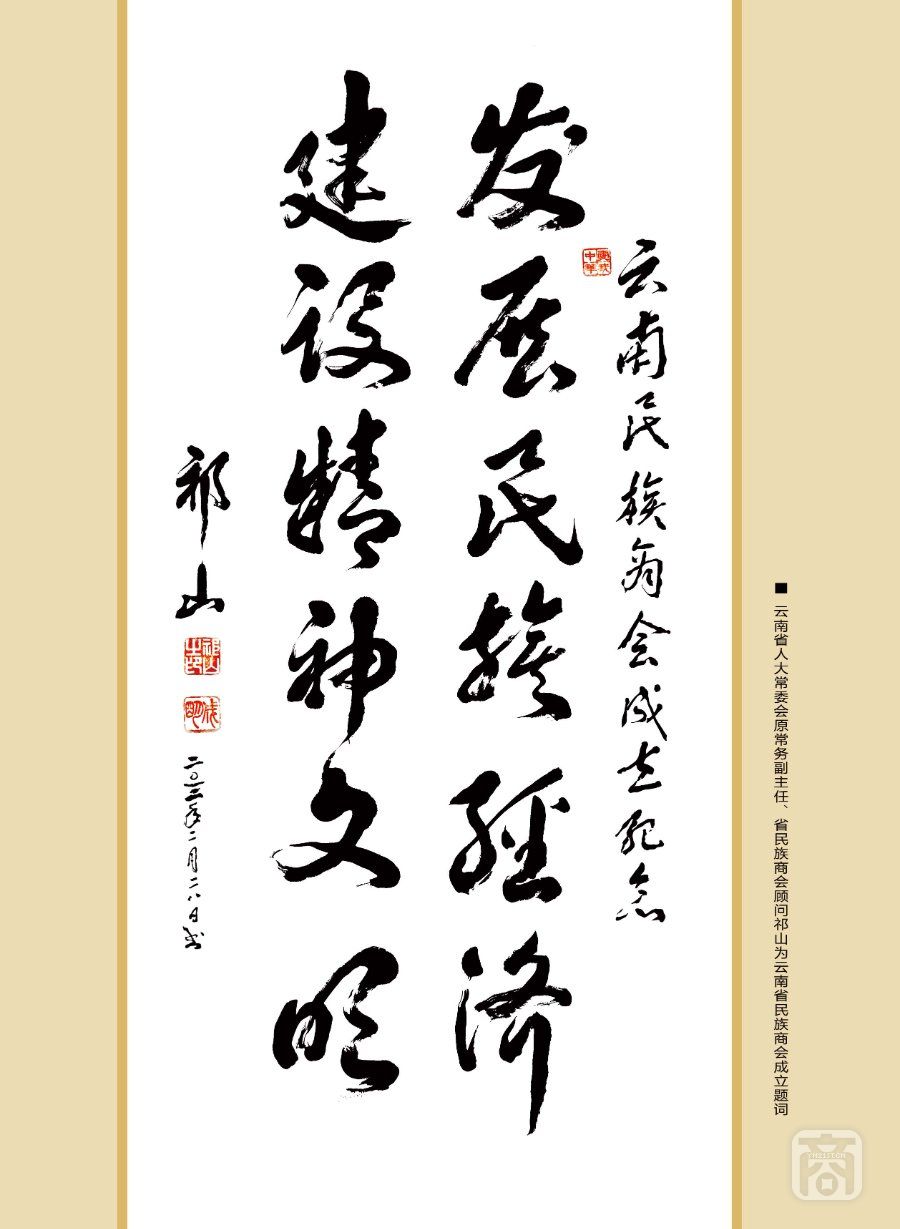 云南民族商会成立纪念
发展民族經济
建设精神文明
祁山
祁山之印
二〇一三年二月二八日书
■ 云南省人大常委会原常务副主任、省民族商会顾问祁山为云南省民族商会成立题词
商